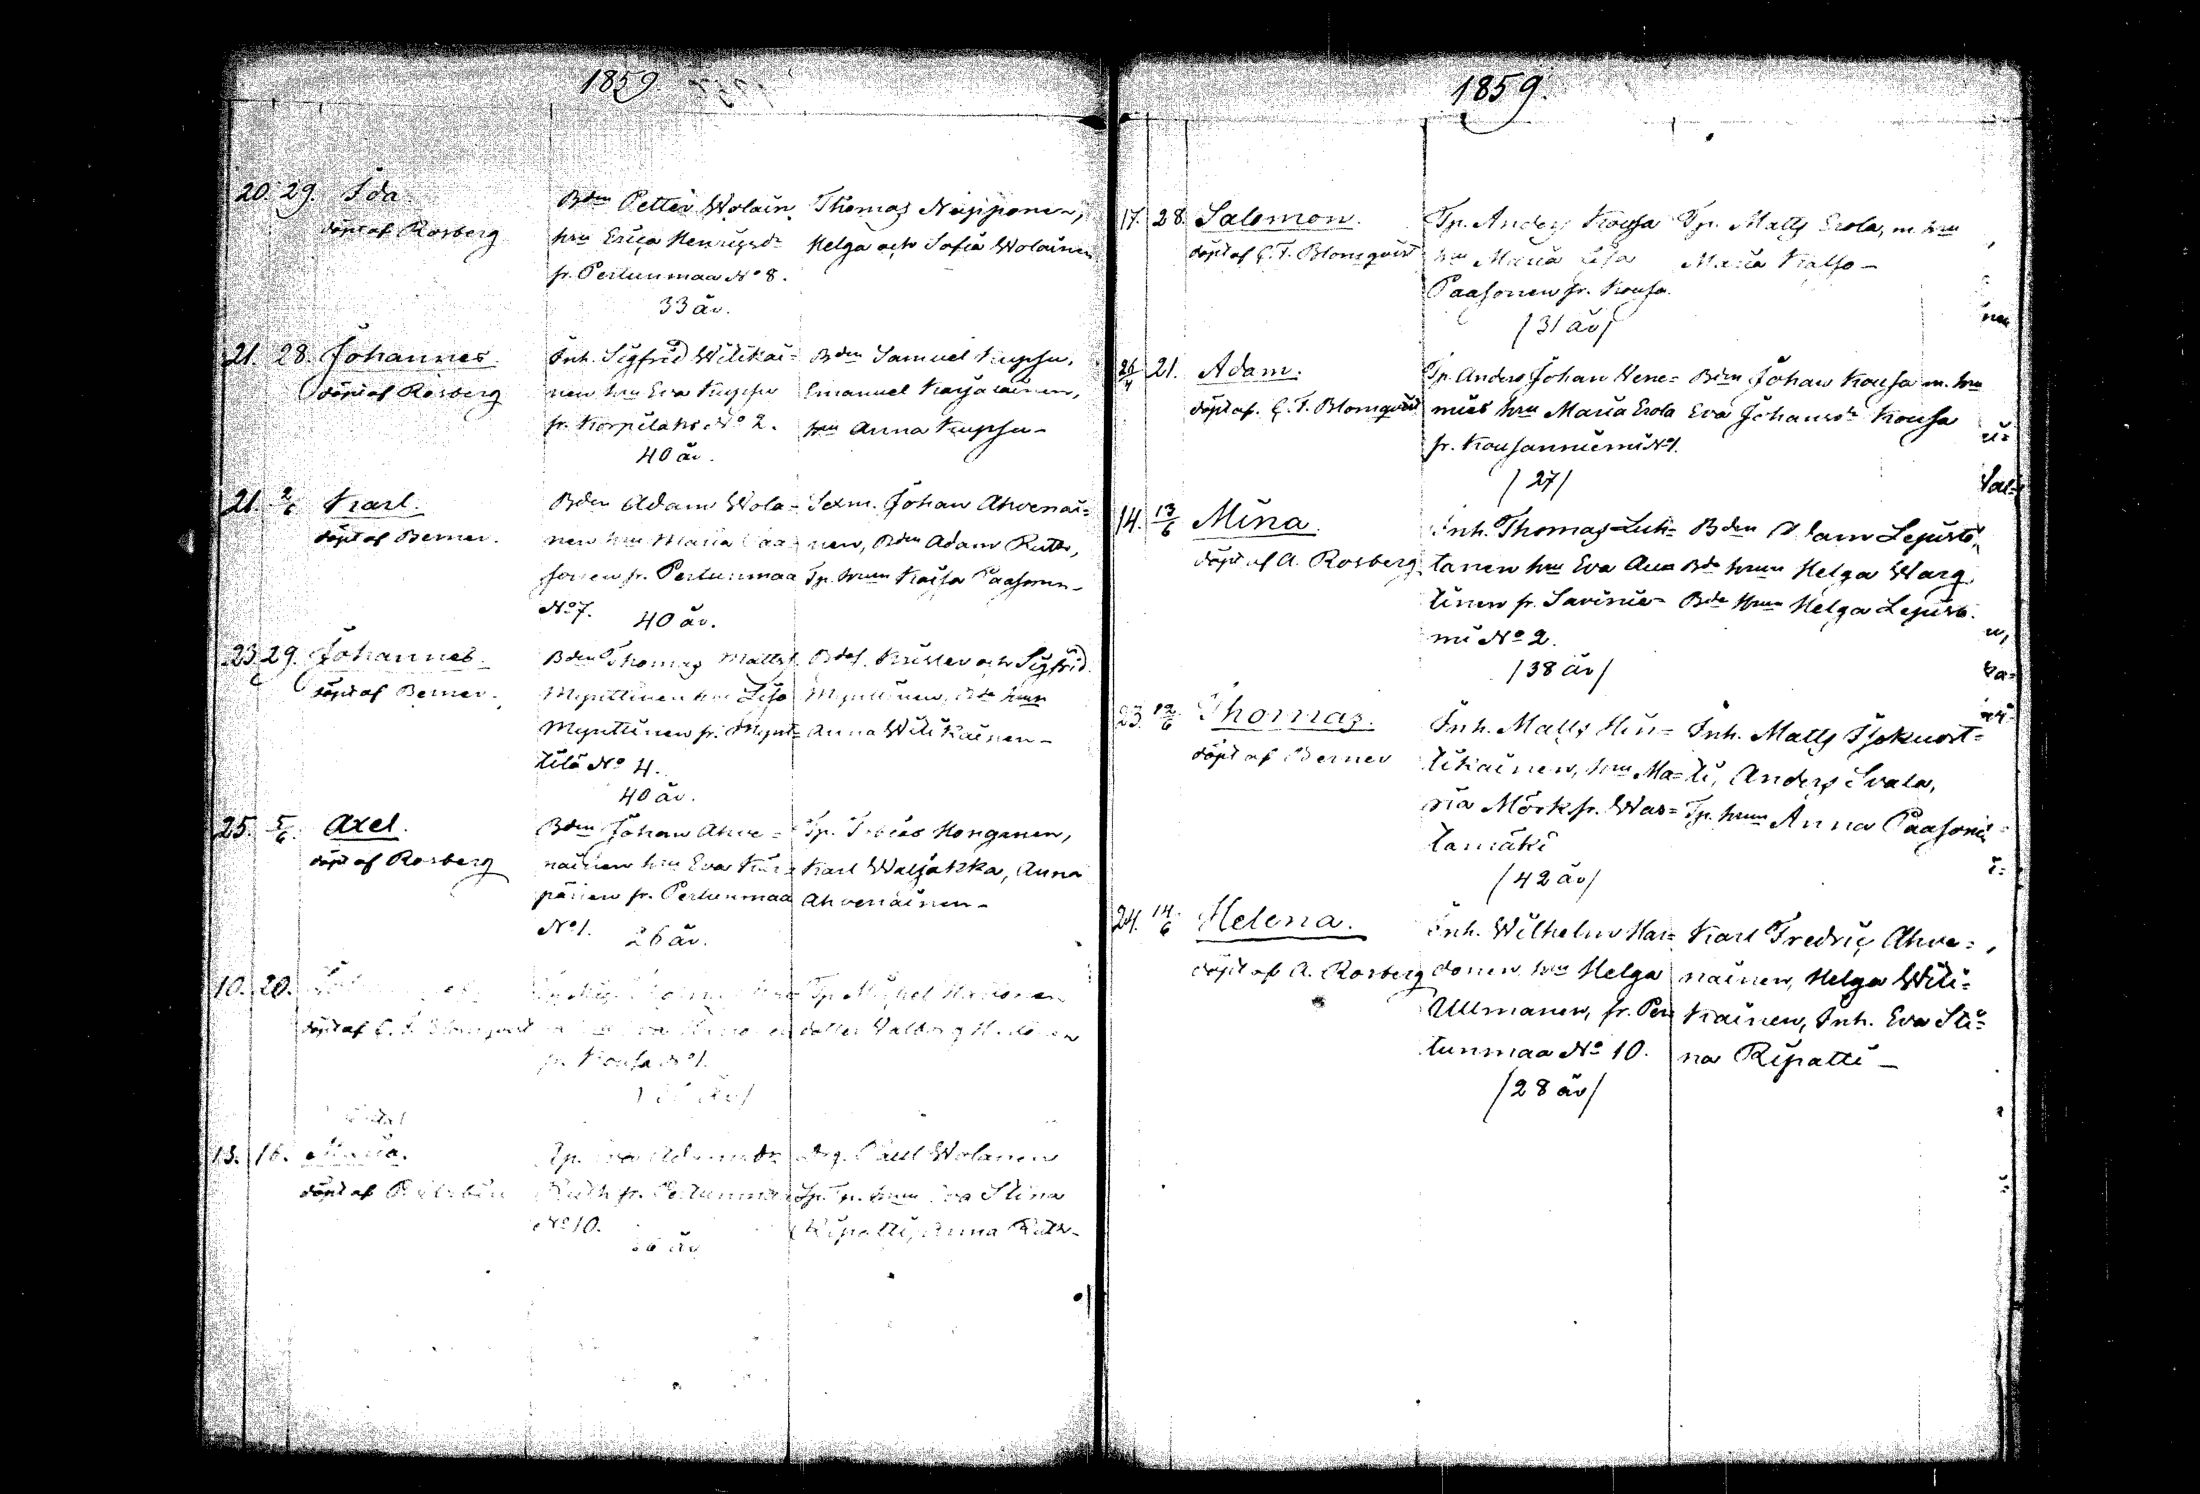 1859.
20. 29. Ida.
döpt af Rosberg
Bdn Petter Wolain.
hru Erica Henricsdr
fr. Pertunmaa No 8.
33 år.
Thomas Neipponen,
Helga och Sofia Wolainen
21. 28. Johannes.
döpt af Rosberg
Inh. Sigfrid Wilikai=
nen hru Eva Kupsu
fr. Korpilaks No 2.
40 år.
Bdn Samuel Kupsu,
Emanuel Karjalainen,
hru Anna Kupsu -
21. 2/6 Karl.
döpt af Berner.
Bdn Adam Wola=
nen hru Maria Paa=
sonen fr. Pertunmaa
No 7. 40 år.
Sexm. Johan Ahvenai=
nen, Bdn Adam Ruth,
Tp. hrun Kaisa Paasonen -
23. 29. Johannes.
döpt af Berner.
Bdn Thomas Matts
Mynttinen hru Lisa
Mynttinen fr. Mynt=
tilä No 4.
40 år.
Bdsr. Krister och Sigfrid
Mynttinen, Bde hrun
Anna Wilikainen -
25. 5/6 Axel.
döpt af Rosberg
Bdn Johan Ahve=
nainen hru Eva
pänen fr. Pertunmaa
No 1. 26 år.
Tp. Tobias Honganen,
Karl Waljakka, Anna
Ahvenainen -
10. 20.
döpt af G. T. Blomqvist
fr. Kousa No 1.
Tp. Michel
dotter Valborg
13. 16. Maria.
döpt af
Ruth fr. Pertunmaa
No 10.
Drg. Paul Wolanen
Tp. hrun Eva Stina
Ripatti, Anna Ruth -
1859.
17. 28. Salomon.
döpt af G. T. Blomqvist
Tp. Anders Kousa
hru Maria Lisa
Paasonen fr. Kousa.
/31 år/
Tp. Matts Erola, m. hru
Maria Kalso -
26/4 21. Adam.
döpt af. G. T. Blomqvist
Tp. Anders Johan Vene=
mies hru Maria Erola
fr. Kousanniemi No 1.
/27/
Bdn Johan Kousa m. hru
Eva Johansdr Kousa
14. 13/6 Mina.
döpt af A. Rosberg.
Inh. Thomas Luk=
tanen hru Eva Aua
tinen fr. Savinie=
mi No 2.
/38 år/
Bdn Adam Lejusto,
Bde hrun Helga Warg
Bde Hrun Helga Lejusto.
23. 12/6 Thomas.
döpt af Berner
Inh. Matts Hin=
tikainen, hru Ma=
ria Mörk fr. Was=
tamäki
/42 år/
Inh. Matts Tjokuort=
ti, Anders Svala,
Tp. hrun Anna Paasonen
24. 14/6 Helena.
döpt af A. Rosberg
Inh. Wilhelm Har=
donen hru Helga
Ullmanen, fr. Per
tunmaa No 10.
/28 år/
Karl Fredric Ahve=
nainen, Helga Wili=
kainen, Inh. Eva Sti=
na Ripatti -